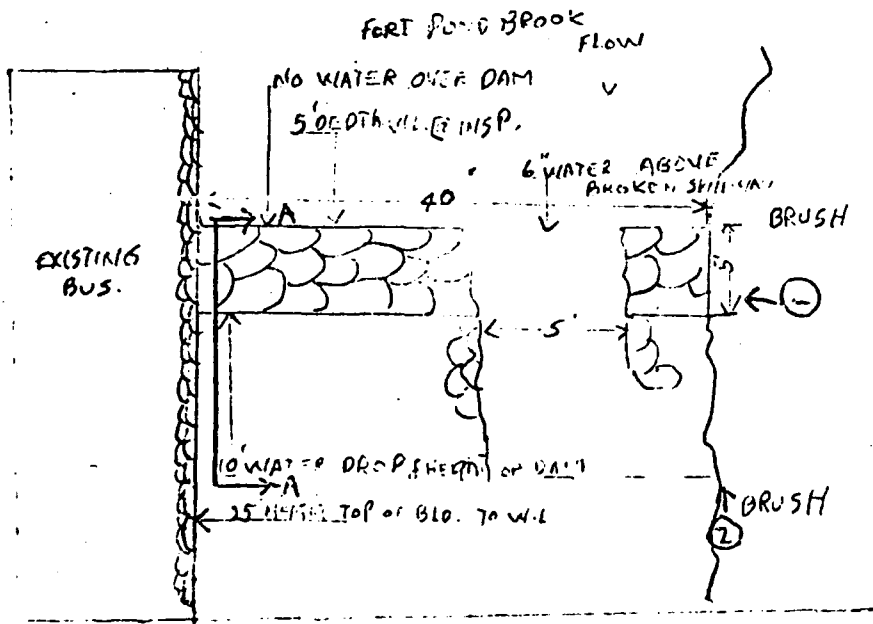 FORT POND BROOK
FLOW
NO WATER OVER DAM
5' DEPTH INSP.
6" WATER ABOVE
BROKEN SPILLWAY
40'
A
BRUSH
EXISTING
BUS.
5'
1
5'
10' WATER DROP, HEIGHT OF DAM
A
25' TOP OF BLD. TO W.L
BRUSH
2